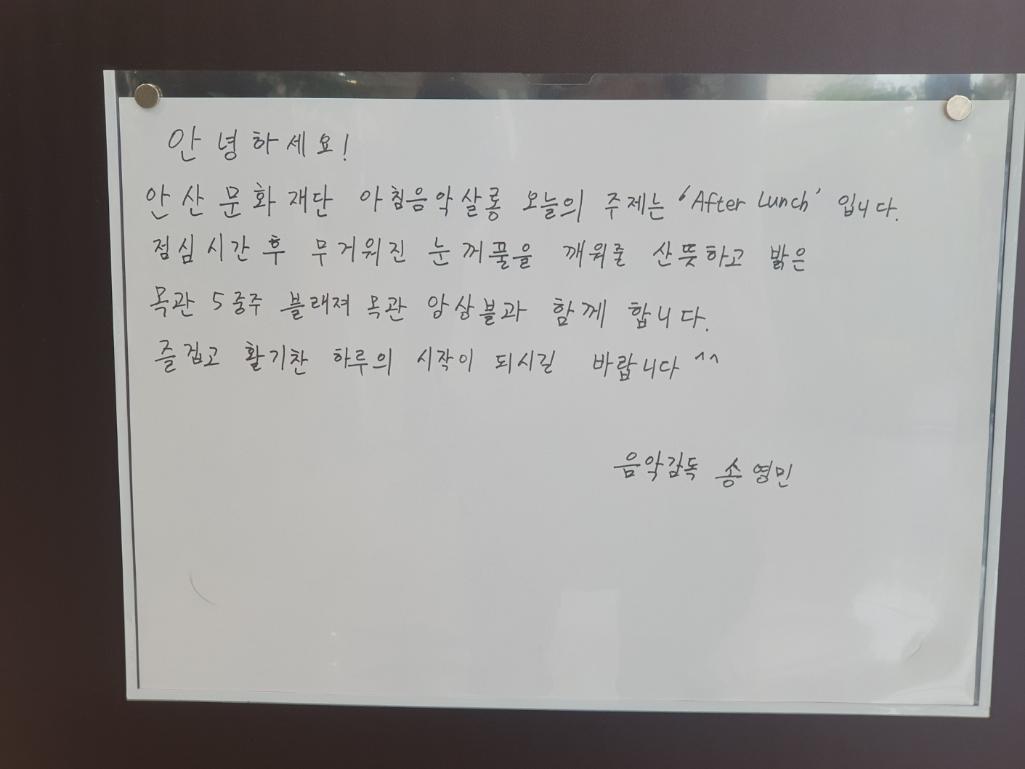 안녕하세요!
안산문화재단 아침음악살롱 오늘의 주제는 'After Lunch' 입니다.
점심시간 후 무거워진 눈꺼풀을 깨워줄 산뜻하고 밝은
목관 5중주 블래져 목관 앙상블과 함께 합니다.
즐겁고 활기찬 하루의 시작이 되시길 바랍니다 ^^
음악감독 송영민